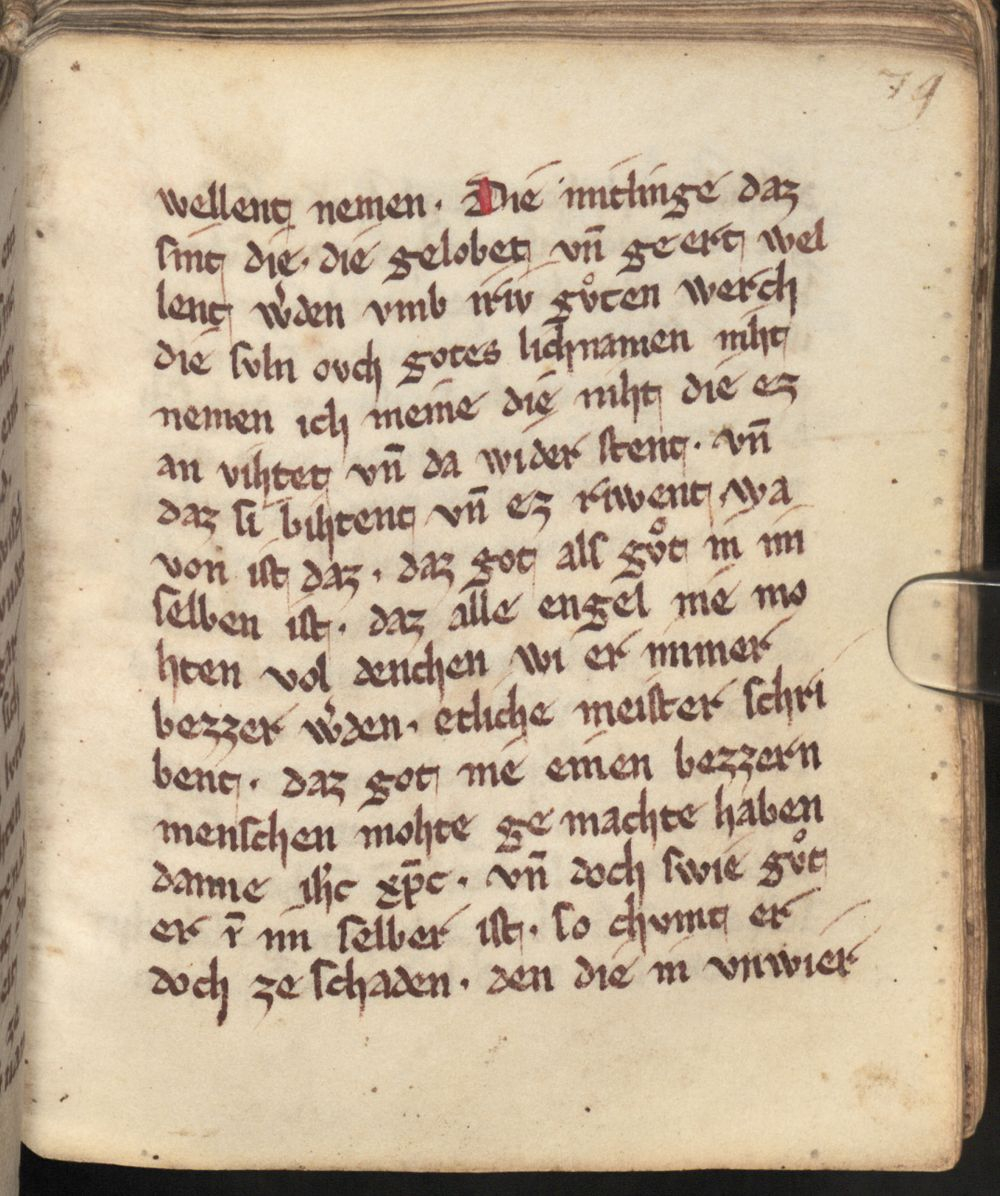 79
wellent nemen. Die mitlinge daz
sint die. die gelobet vn̄ ge ert wel
lent w̓den vmb iriv gvͦten werch
die svln ovch gotes lichnamen niht
nemen ich meine die niht die ez
an vihtet vn̄ da wider stent. vn̄
daz si bihtent vn̄ ez riwent wa
von ist daz. daz got als gvͦt in im
selben ist. daz alle engel nie mo
hten vol denchen wi er immer
bezzer w̓den. etliche meister schri
bent. daz got nie einen bezzern
menschen mohte ge machte haben
danne ih̄c xp̄c. vn̄ doch swie gvͦt
er im selber ist. so chvmt er
doch ze schaden. den die in vnwier